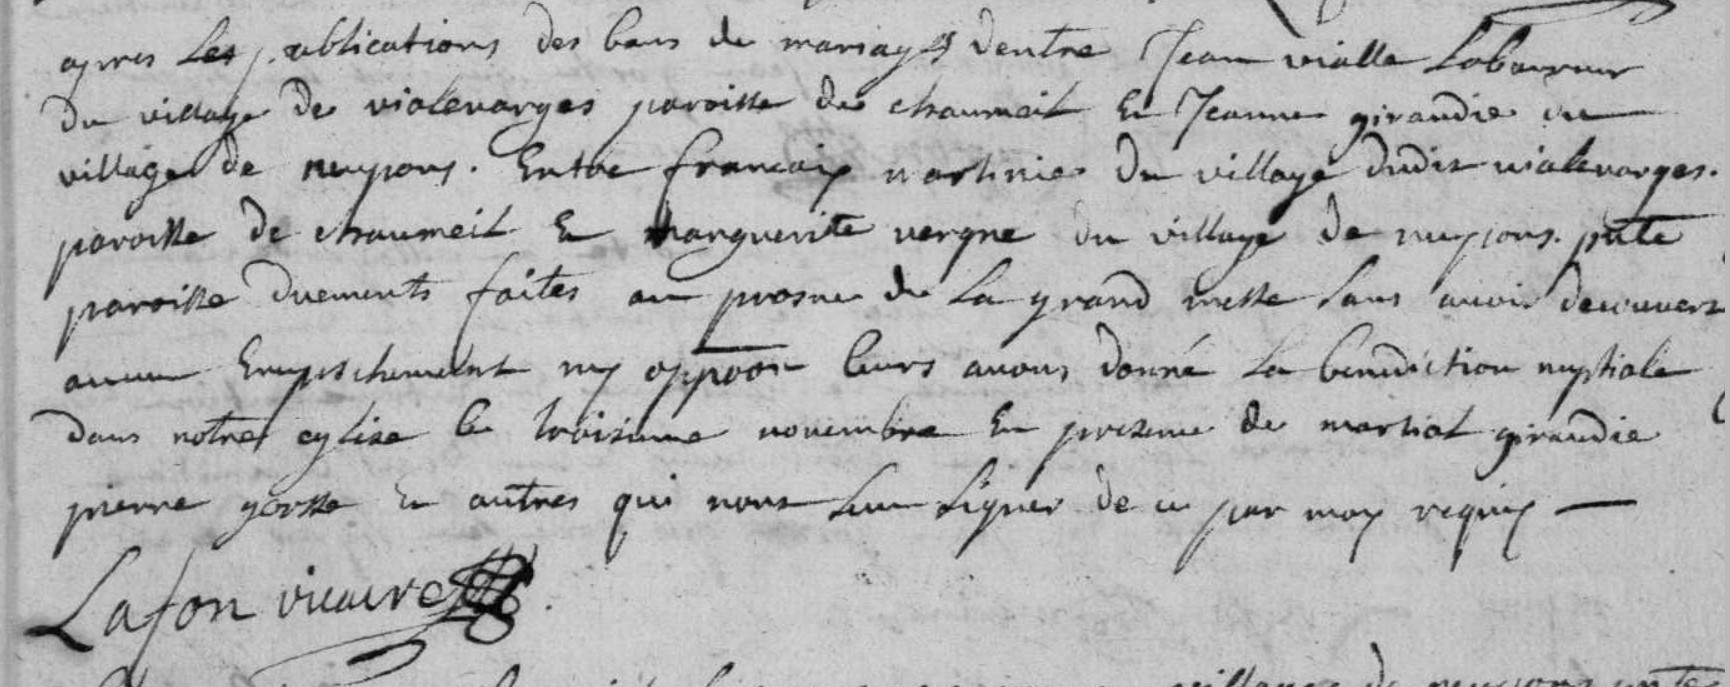 apres les publications des bans de mariages dentre Jean vialle Laboureur
du village de vialevarges paroisse de chaumeil Et Jeanne giraudie du
village de neupons. Entre francois martinie du village dudit vialevarges.
paroisse de chaumeil Et marguerite vergne du village de neupons. pnte
paroisse duements faites au prosne de La grand messe sans avoir decouvert
aucun Empeschement ny oppoon leurs avons donné La benediction nuptiale
dans notre eglise le troisieme novembre En presence de martial giraudie
pierre gorsse Et autres qui nont sceu signer de ce par moy requis
Lafon vicaire
village de neupons pnte